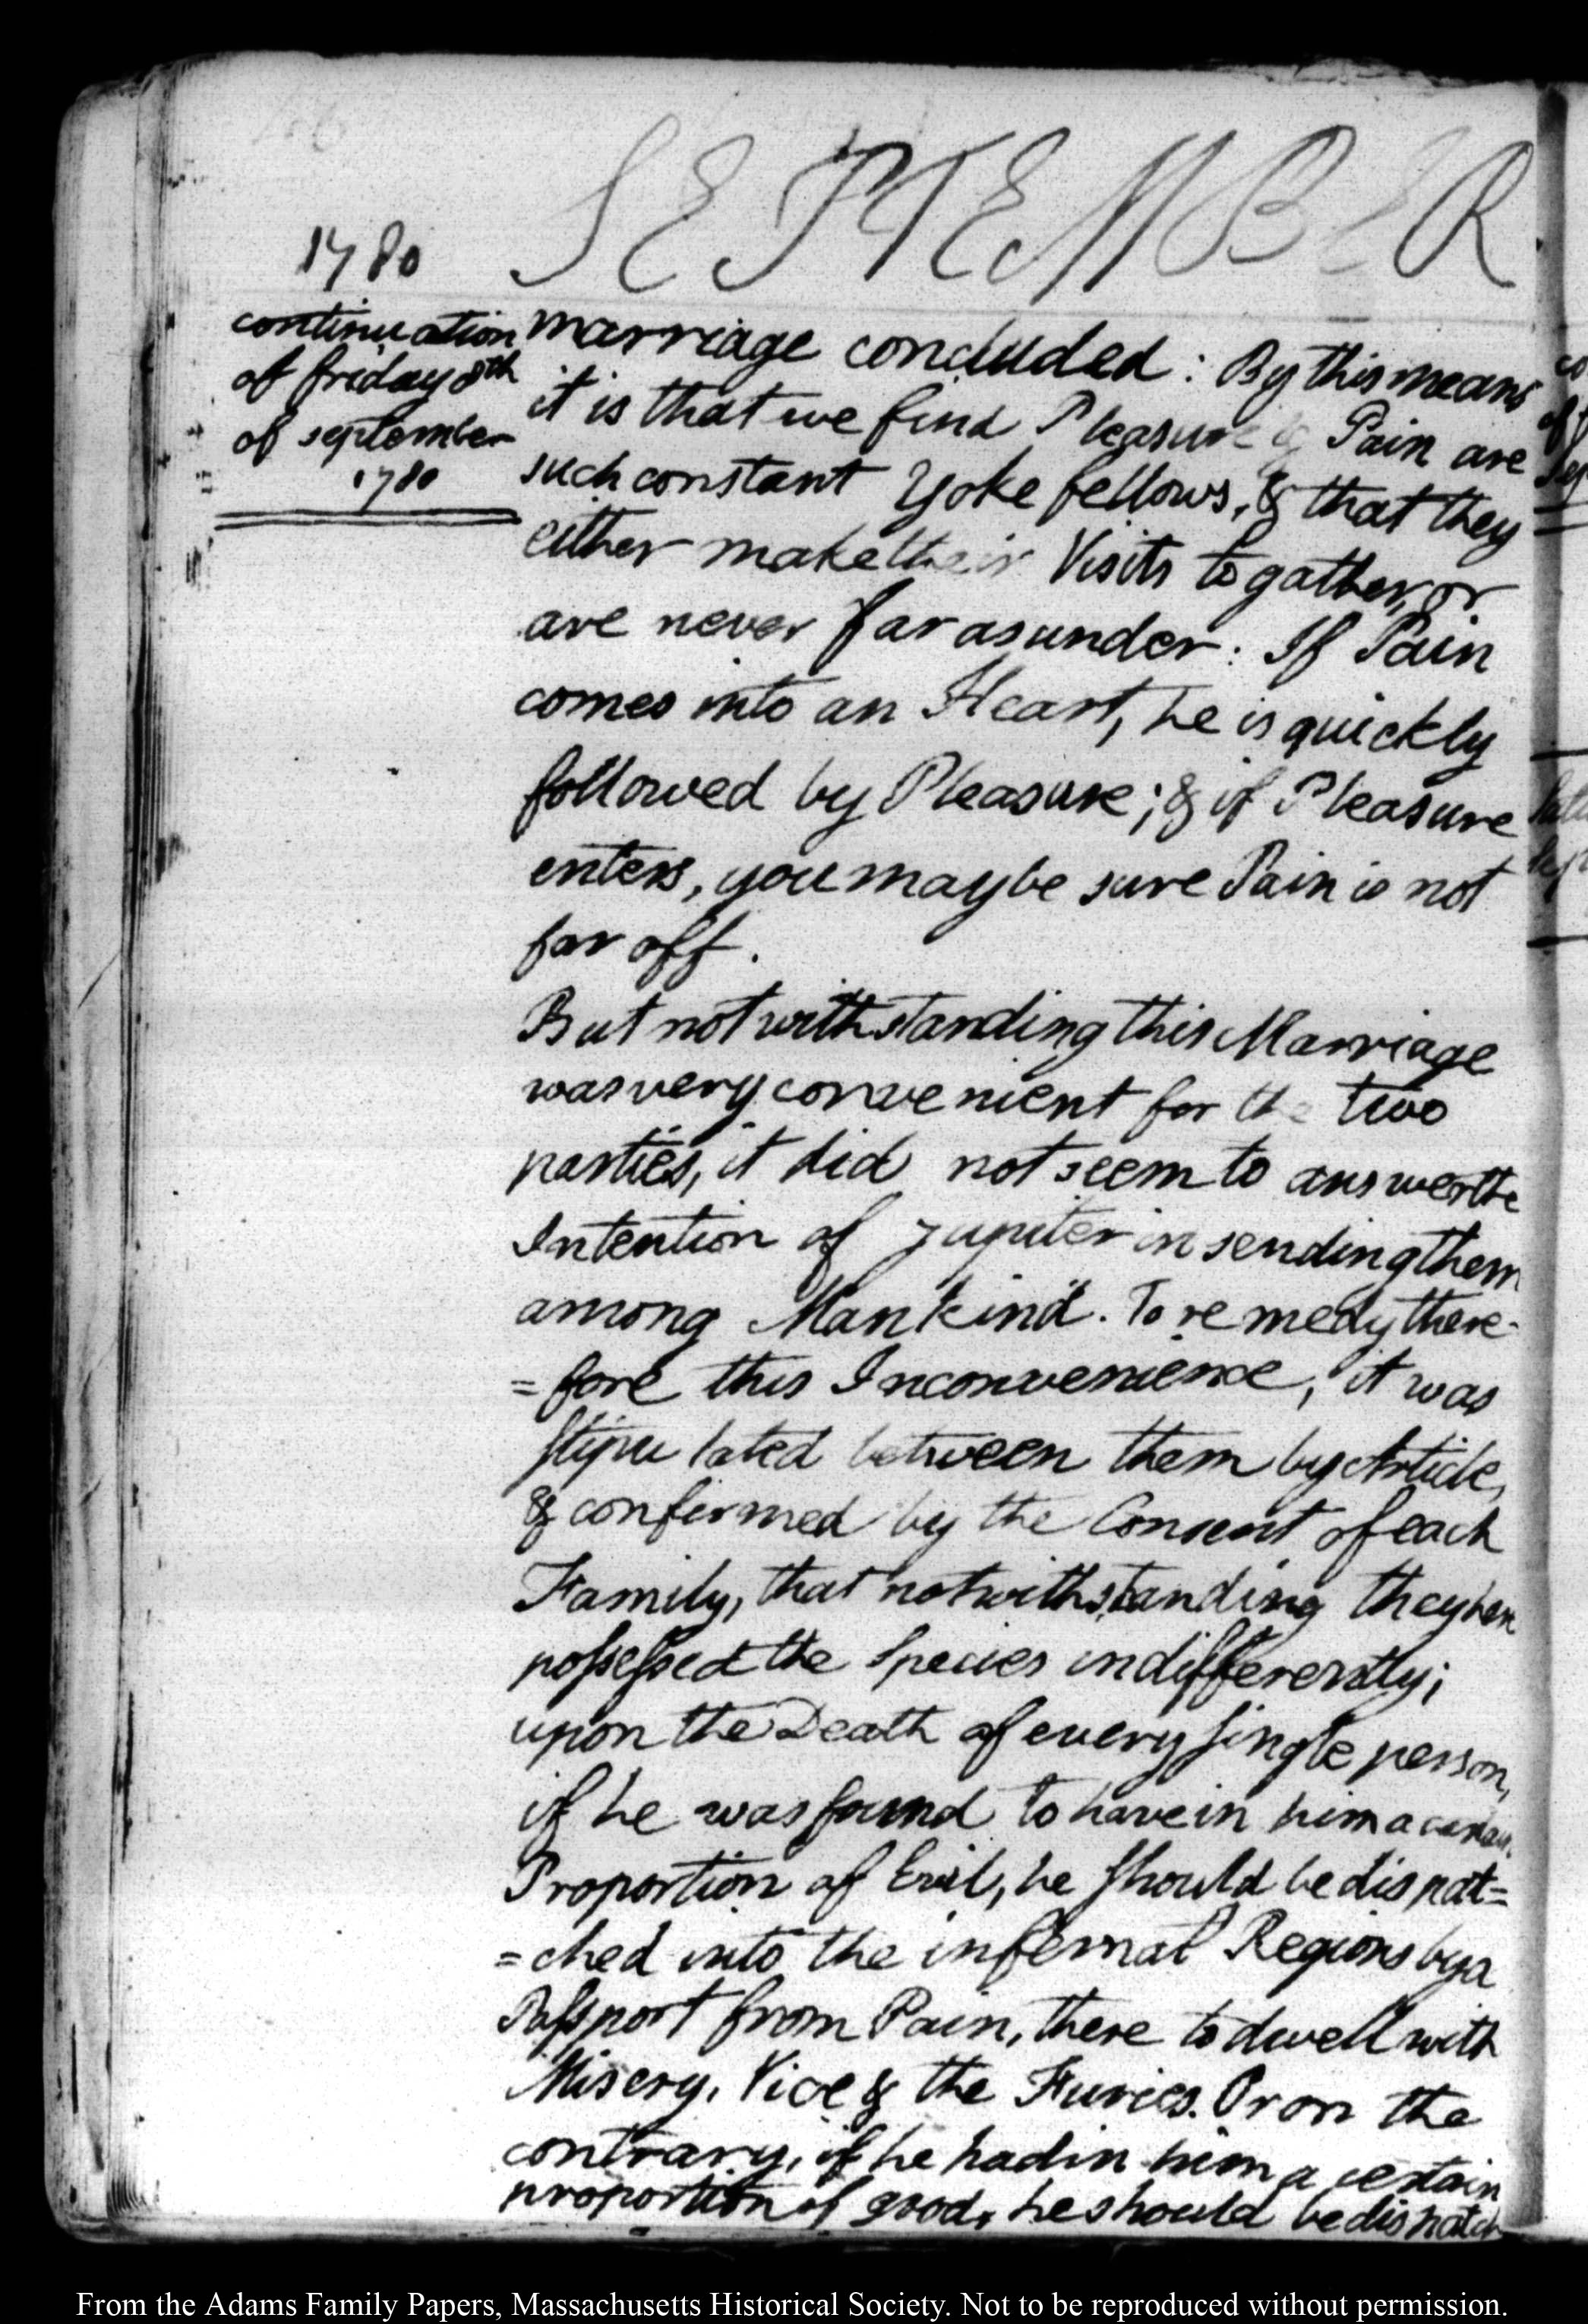 SEPTEMBER
1780
continuation
of friday 8th
of september
1780
marriage concluded: By this means
it is that we find Pleasure & Pain are
such constant Yoke fellows, & that they
either make their Visits togather, or
are never far asunder: If Pain
comes into an Heart, he is quickly
followed by Pleasure; & if Pleasure
enters, you may be sure Pain is not
far off.
But notwithstanding this Marriage
was very convenient for the two
parties, it did not seem to answer the
Intention of Jupiter in sending them
among Mankind. To remedy there-
=fore this Inconvenience, it was
stipulated between them by Article,
& confirmed by the Consent of each
Family, that notwithstanding they here
possessed the Species indifferently;
upon the Death of every single person,
if he was found to have in him a certain
Proportion of Evil, he should be dispat=
=ched into the infernal Regions by a
Passport from Pain, there to dwell with
Misery, Vice & the Furies. Or on the
contrary, if he had in him a certain
proportion of good, he should be dispatch
From the Adams Family Papers, Massachusetts Historical Society. Not to be reproduced without permission.